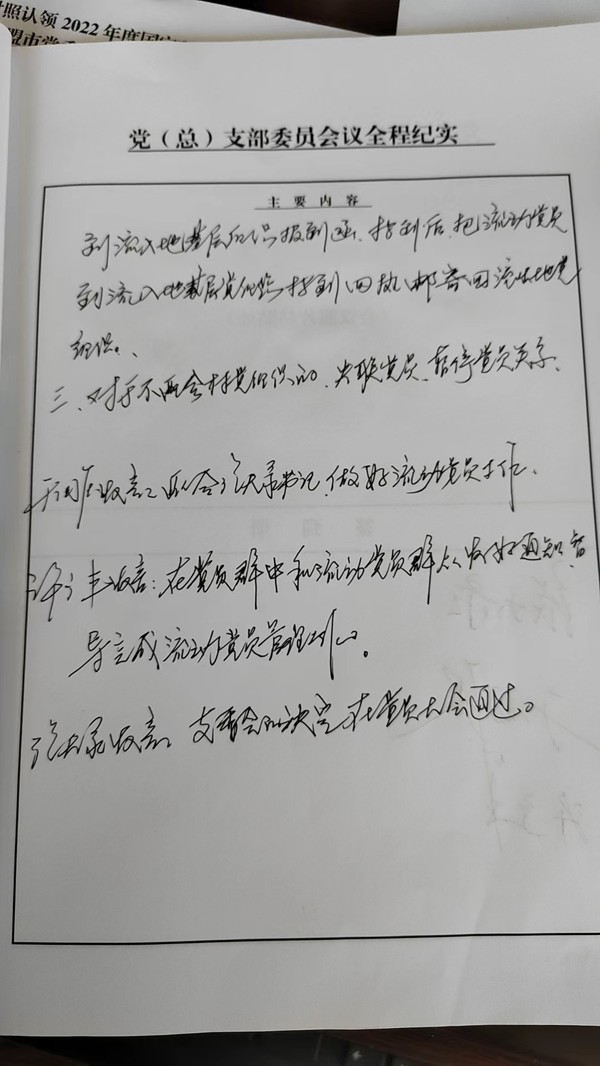 对照认领2022年度国家
盟市党
党（总）支部委员会议全程纪实
主要内容
到流入地基层组织报到函、接到后、把流动党员
到流入地基层党组织接到回执邮寄回流出地党
组织。
三、对于不配合村党组织的、失联党员、暂停党员关系、
发言：配合张大录书记、做好流动党员工作、
许丰发言：在党员群中和流动党员群众发好通知、督
导完成流动党员管理工作。
张大录发言：支委会的决定在党员大会通过。